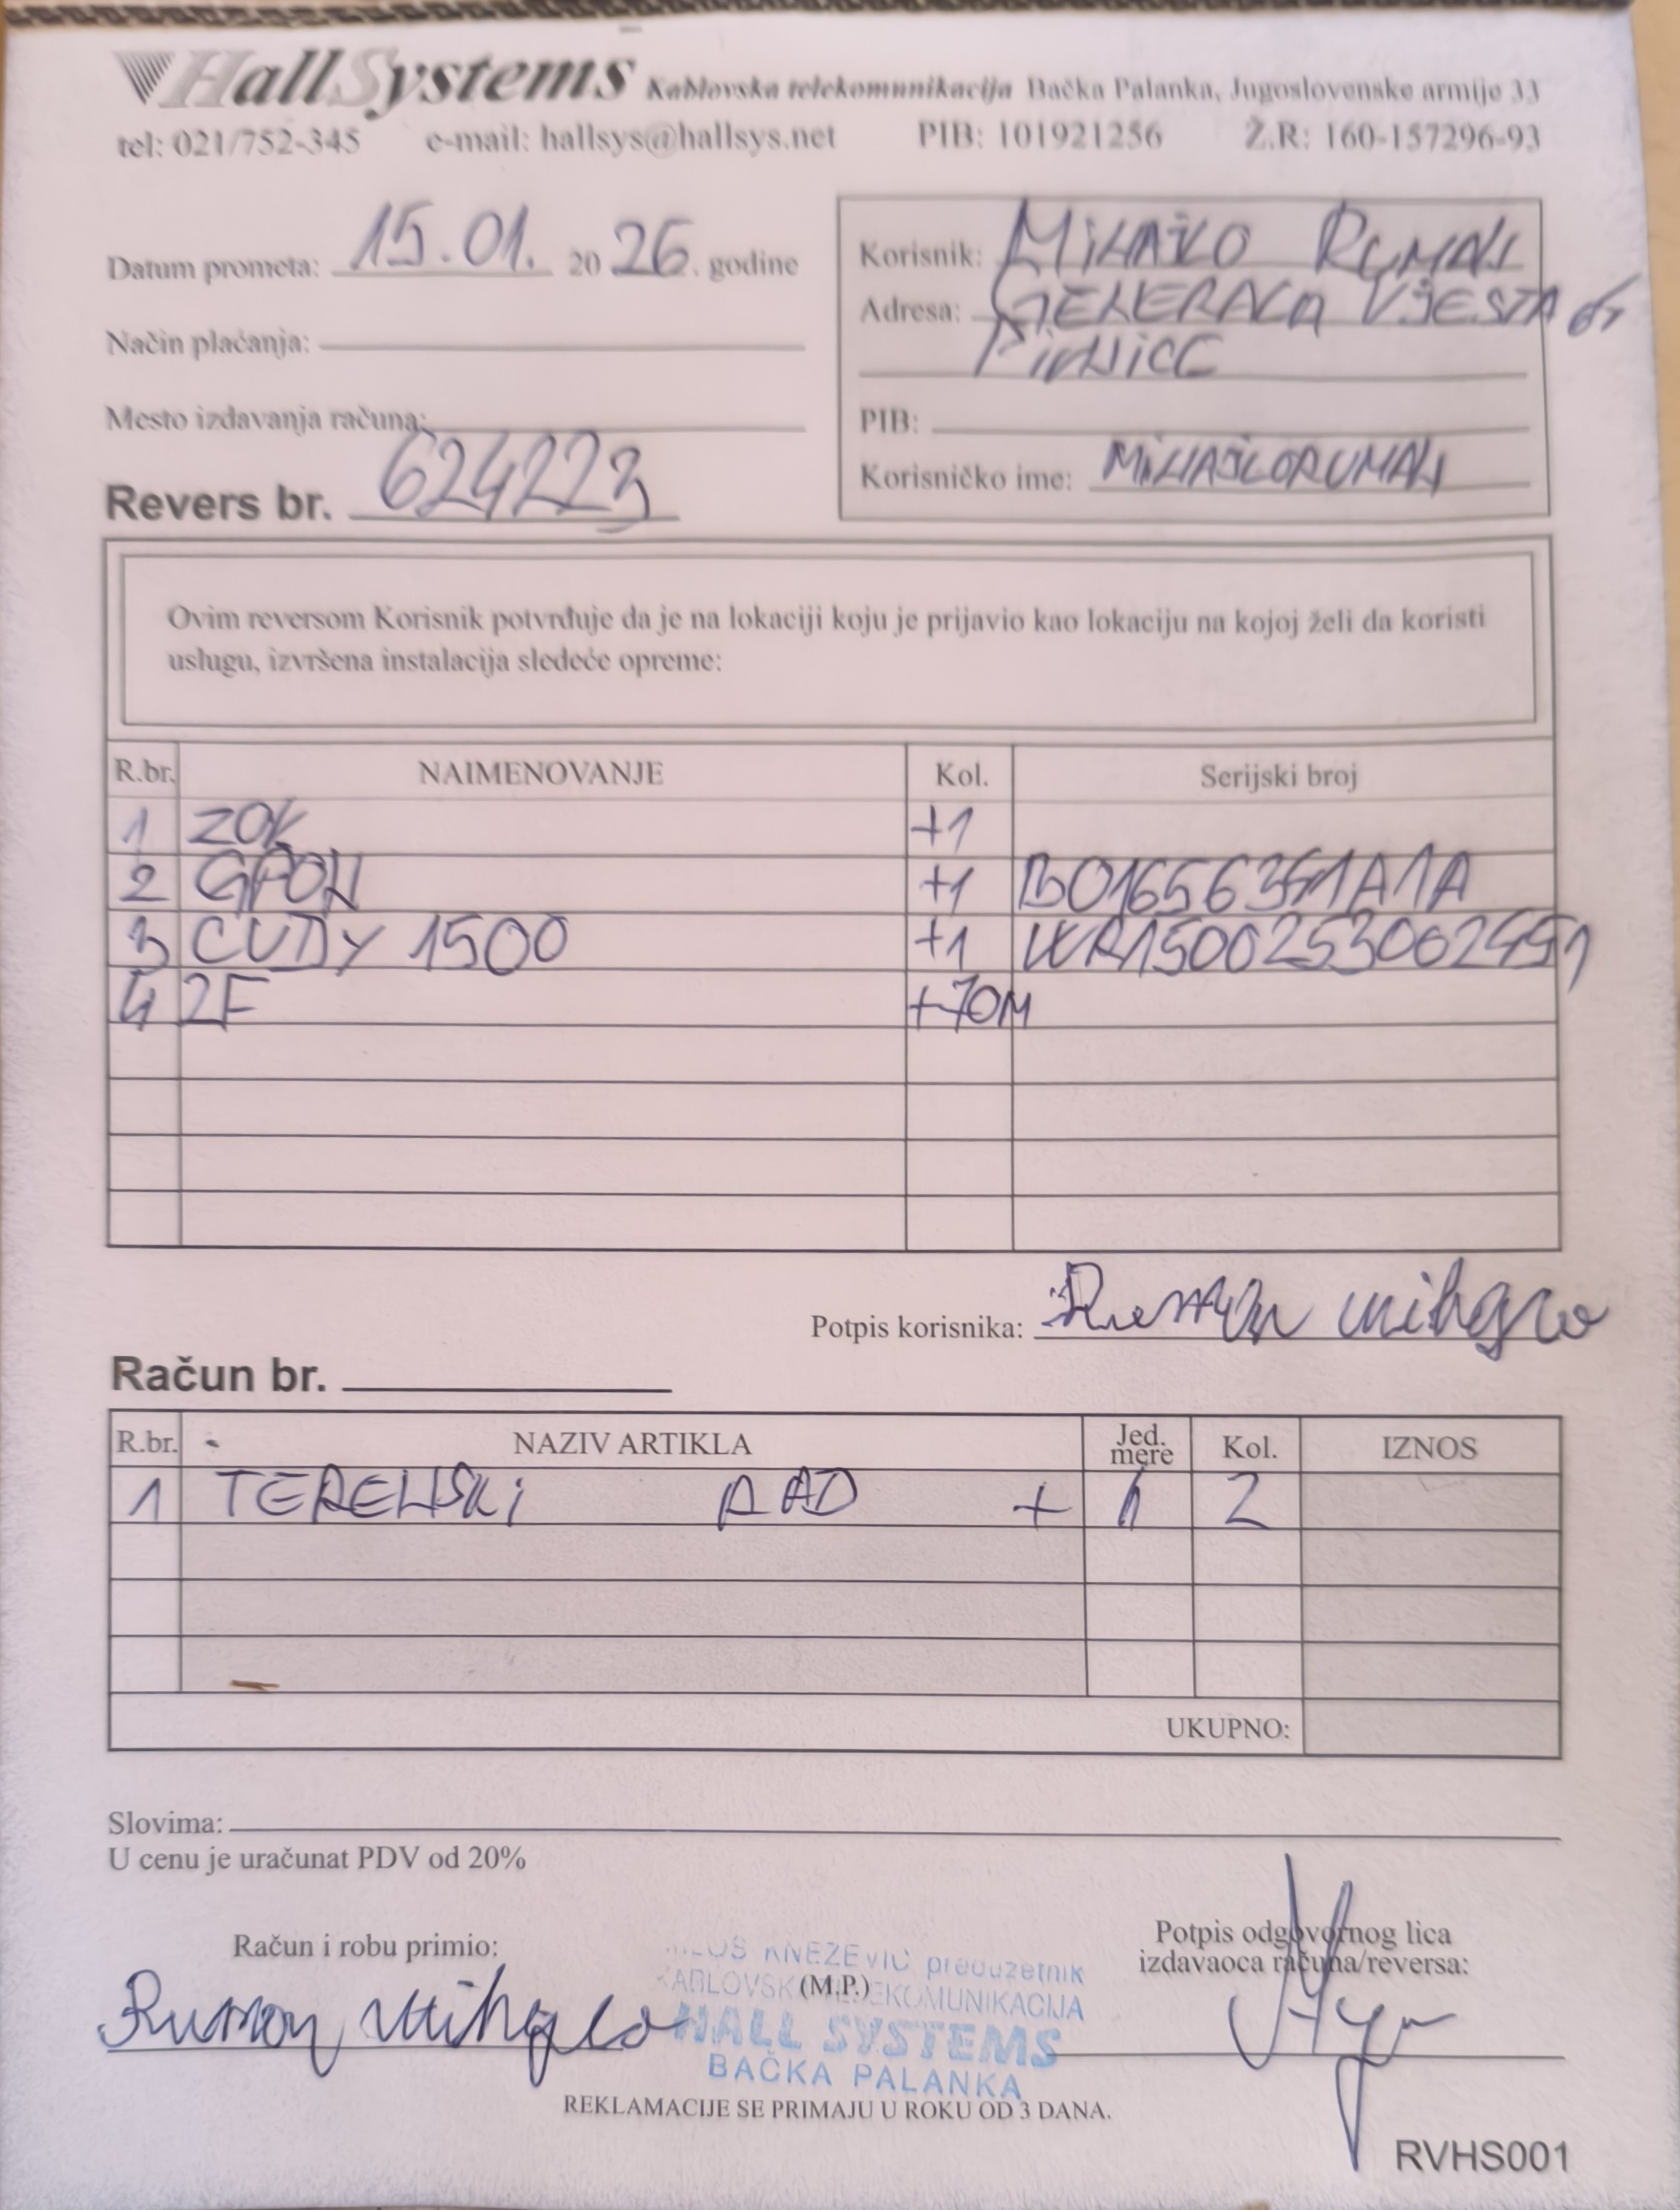 HallSystems Kablovska telekomunikacija Bačka Palanka, Jugoslovenske armije 33
tel: 021/752-345 e-mail: hallsys@hallsys.net PIB: 101921256 Ž.R: 160-157296-93
Datum prometa: 15.01. 2026. godine
Način plaćanja:
Mesto izdavanja računa:
Revers br. 624223
Korisnik: MIHAJLO RUMAN
Adresa: GENERALA VJEŠTA
PIVNICE
PIB:
Korisničko ime: MIHAJLORUMAN
Ovim reversom Korisnik potvrđuje da je na lokaciji koju je prijavio kao lokaciju na kojoj želi da koristi
uslugu, izvršena instalacija sledeće opreme:
R.br. NAIMENOVANJE Kol. Serijski broj
1 ZOK +1
2 GPON +1
3 CUDY 1500 +1
4 2F +70M
Potpis korisnika: Ruman Mihajlo
Račun br.
R.br. NAZIV ARTIKLA Jed. mere Kol. IZNOS
1 TERENSKI RAD + h 2
UKUPNO:
Slovima:
U cenu je uračunat PDV od 20%
Računi i robu primio:
Ruman Mihajlo
KNEŽEVIĆ preduzetnik
KABLOVSKA TELEKOMUNIKACIJA
(M.P.)
HALL SYSTEMS
BAČKA PALANKA
Potpis odgovornog lica
izdavaoca računa/reversa:
REKLAMACIJE SE PRIMAJU U ROKU OD 3 DANA.
RVHS001